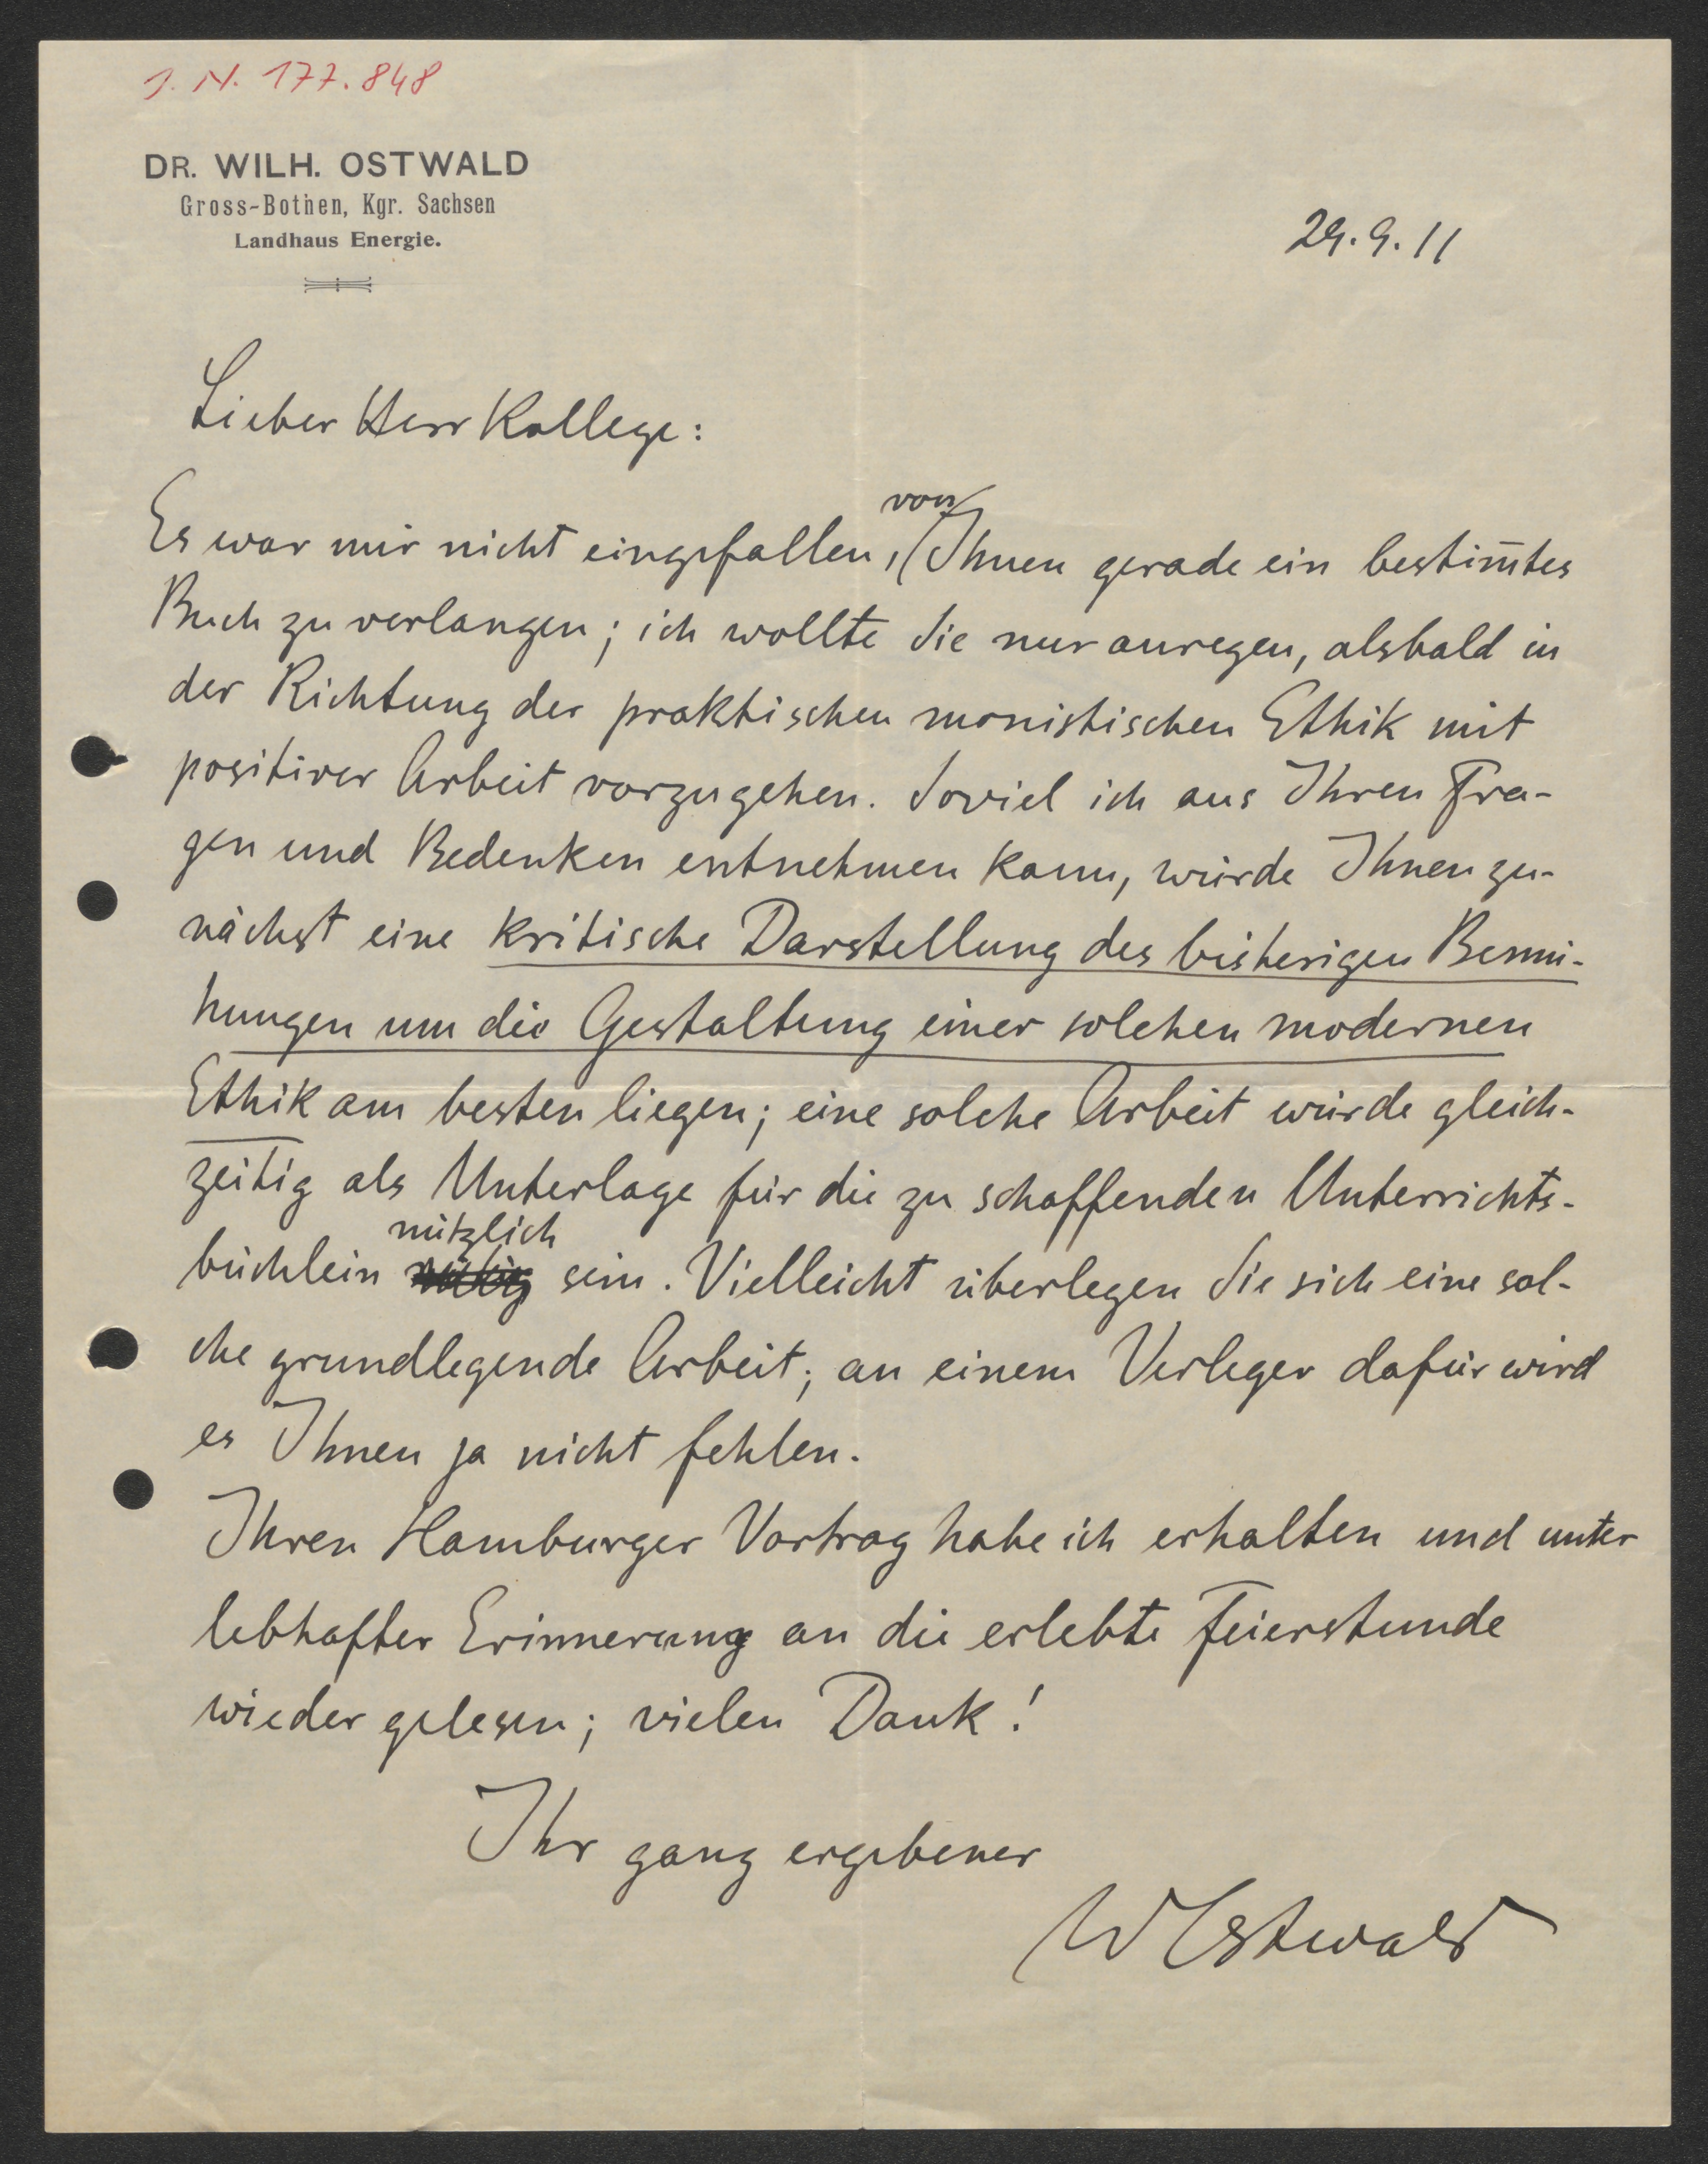 J. N. 177.848
DR. WILH. OSTWALD
Gross-Bothen, Kgr. Sachsen
Landhaus Energie.
29.9.11
Lieber Herr Kollege:
Es war mir nicht eingefallen, von Ihnen gerade ein bestim̅tes
Buch zu verlangen; ich wollte Sie nur anregen, alsbald in
der Richtung der praktischen monistischen Ethik mit
positiver Arbeit vorzugehen. Soviel ich aus Ihren Fra-
gen und Bedenken entnehmen kann, würde Ihnen zu-
nächst eine kritische Darstellung der bisherigen Bemü-
hungen um die Gestaltung einer solchen modernen
Ethik am besten liegen; eine solche Arbeit würde gleich-
zeitig als Unterlage für die zu schaffenden Unterrichts-
büchlein nützlich sein. Vielleicht überlegen Sie sich eine sol-
che grundlegende Arbeit; an einem Verleger dafür wird
es Ihnen ja nicht fehlen.
Ihren Hamburger Vortrag habe ich erhalten und unter
lebhafter Erinnerung an die erlebte Feierstunde
wieder gelesen; vielen Dank!
Ihr ganz ergebener
W Ostwald